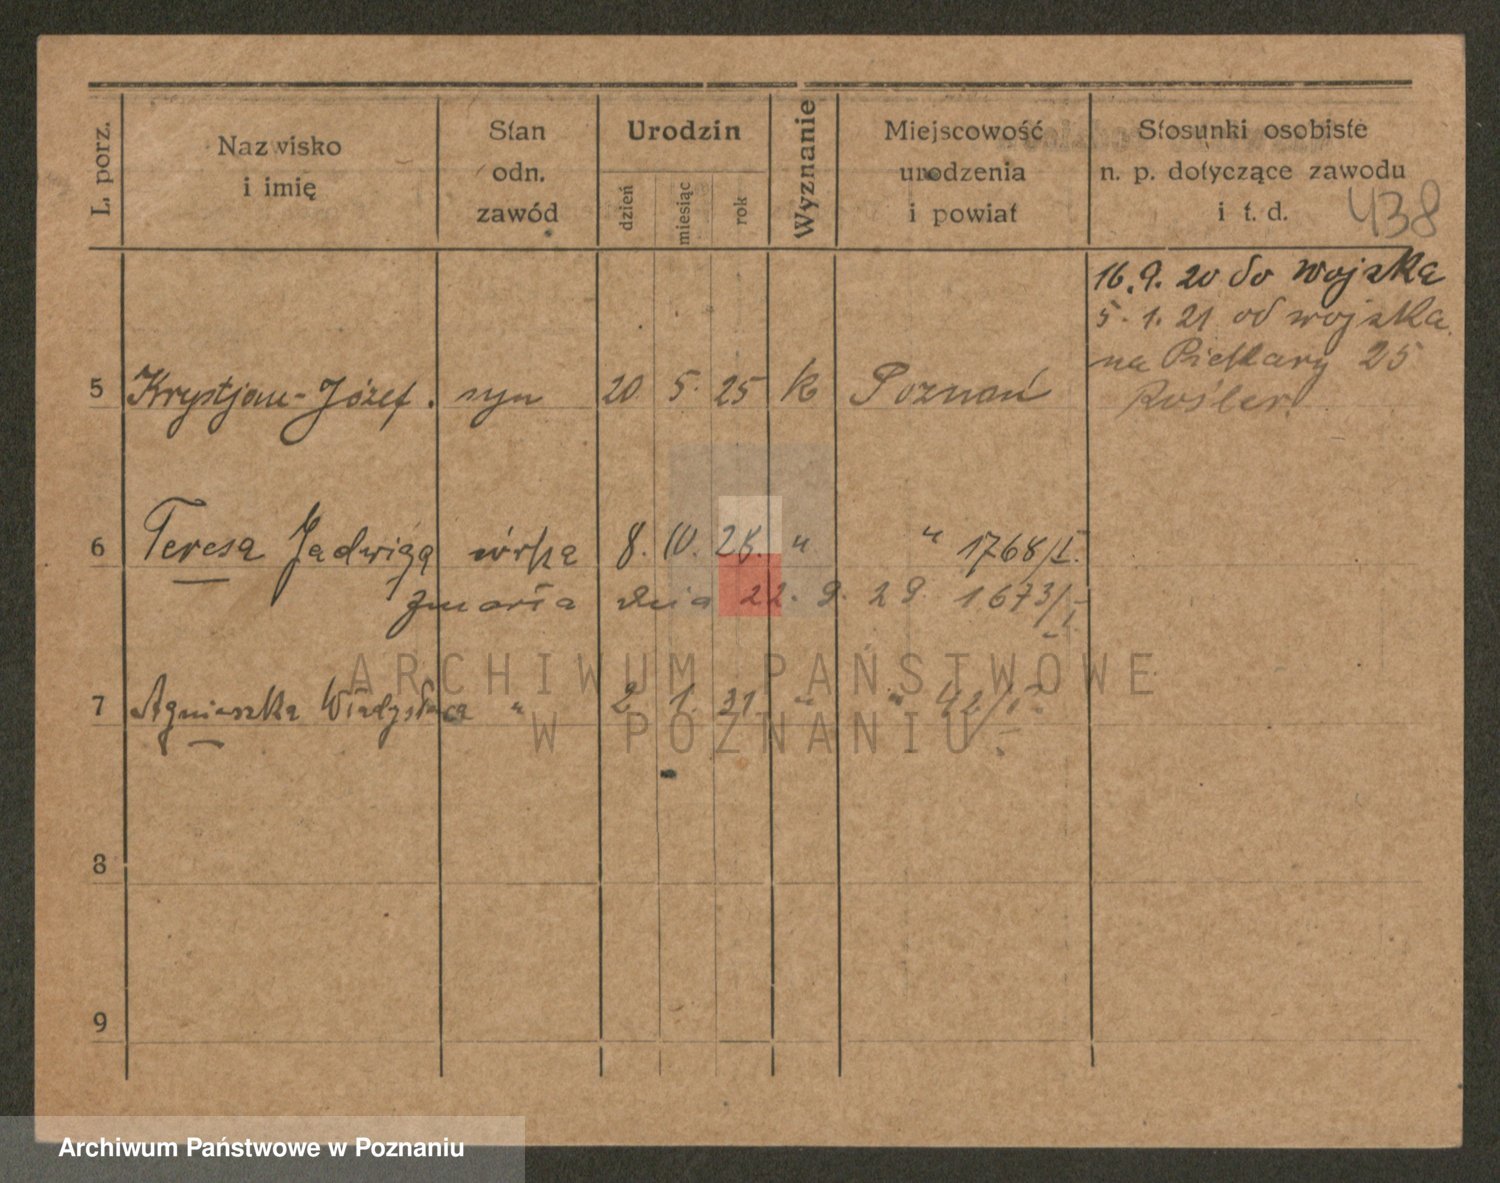 L. porz.
Nazwisko
i imię
Stan
odn.
zawód
Urodzin
dzień
miesiąc
rok
Wyznanie
Miejscowość
urodzenia
i powiat
Stosunki osobiste
n. p. dotyczące zawodu
i t. d.
438
16.9.20 do wojska
5.1.21 od wojska
na Piekary 25
Rösler
5 Krystjan-Józef. syn 20 5. 25 k Poznań
6 Teresa Jadwiga córka 8. 10. 28. " " 1768/I.
zmarła dnia 22. 9. 29. 1673/I.
7 Agnieszka Władysława " 2 1. 31. " " 42/I.
8
9
ARCHIWUM PAŃSTWOWE
W POZNANIU
Archiwum Państwowe w Poznaniu